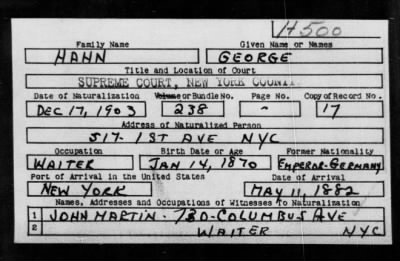 H500
Family Name Given Name or Names
HAHN GEORGE
Title and Location of Court
SUPREME COURT, NEW YORK COUNTY
Date of Naturalization Volume or Bundle No. Page No. Copy of Record No.
DEC 17, 1903 238 - 17
Address of Naturalized Person
517- 1ST AVE NYC
Occupation Birth Date or Age Former Nationality
WAITER JAN 14, 1870 EMPEROR-GERMANY
Port of Arrival in the United States Date of Arrival
NEW YORK MAY 11, 1882
Names, Addresses and Occupations of Witnesses To Naturalization
1 JOHN MARTIN - 730-COLUMBUS AVE
2 WAITER NYC